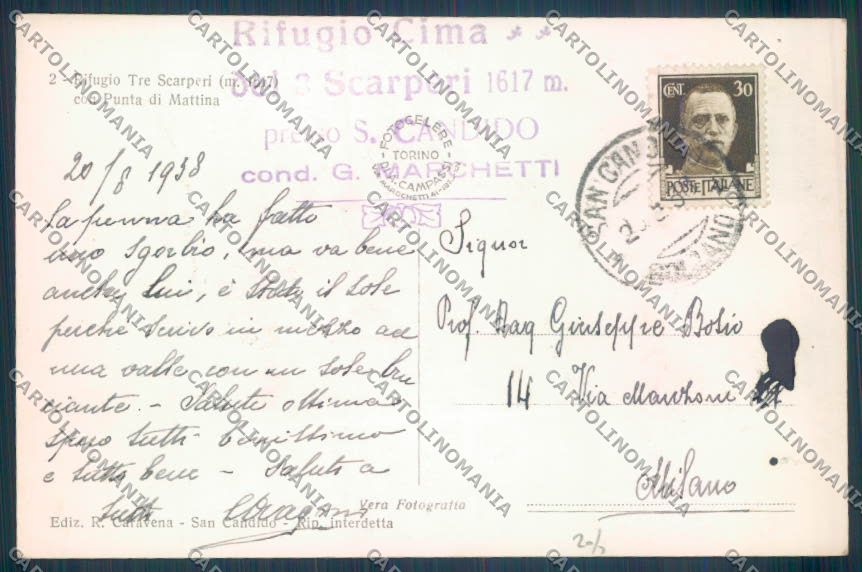 Rifugio Cima
dei 3 Scarperi 1617 m.
presso S. CANDIDO
cond. G. MARCHETTI
2 - Rifugio Tre Scarperi (m. 1617)
con Punta di Mattina
FOTOCELERE
TORINO
DI A. CAMPASSI
CENT. 30
POSTE ITALIANE
SAN CANDIDO
20/8 1938
La penna ha fatto
uno sgorbio, ma va bene
anche lui, è stato il sole
perché scrivo in mezzo ad
una valle con un sole bru
ciante. - Salute ottima
spero tutti benissimo
e tutto bene - Saluti a
tutti
Signor
Prof. Rag Giuseppe Bosio
14 Via Manzoni
Milano
Vera Fotografia
Ediz. R. Caravena - San Candido - Rip. interdetta
CARTOLINOMANIA